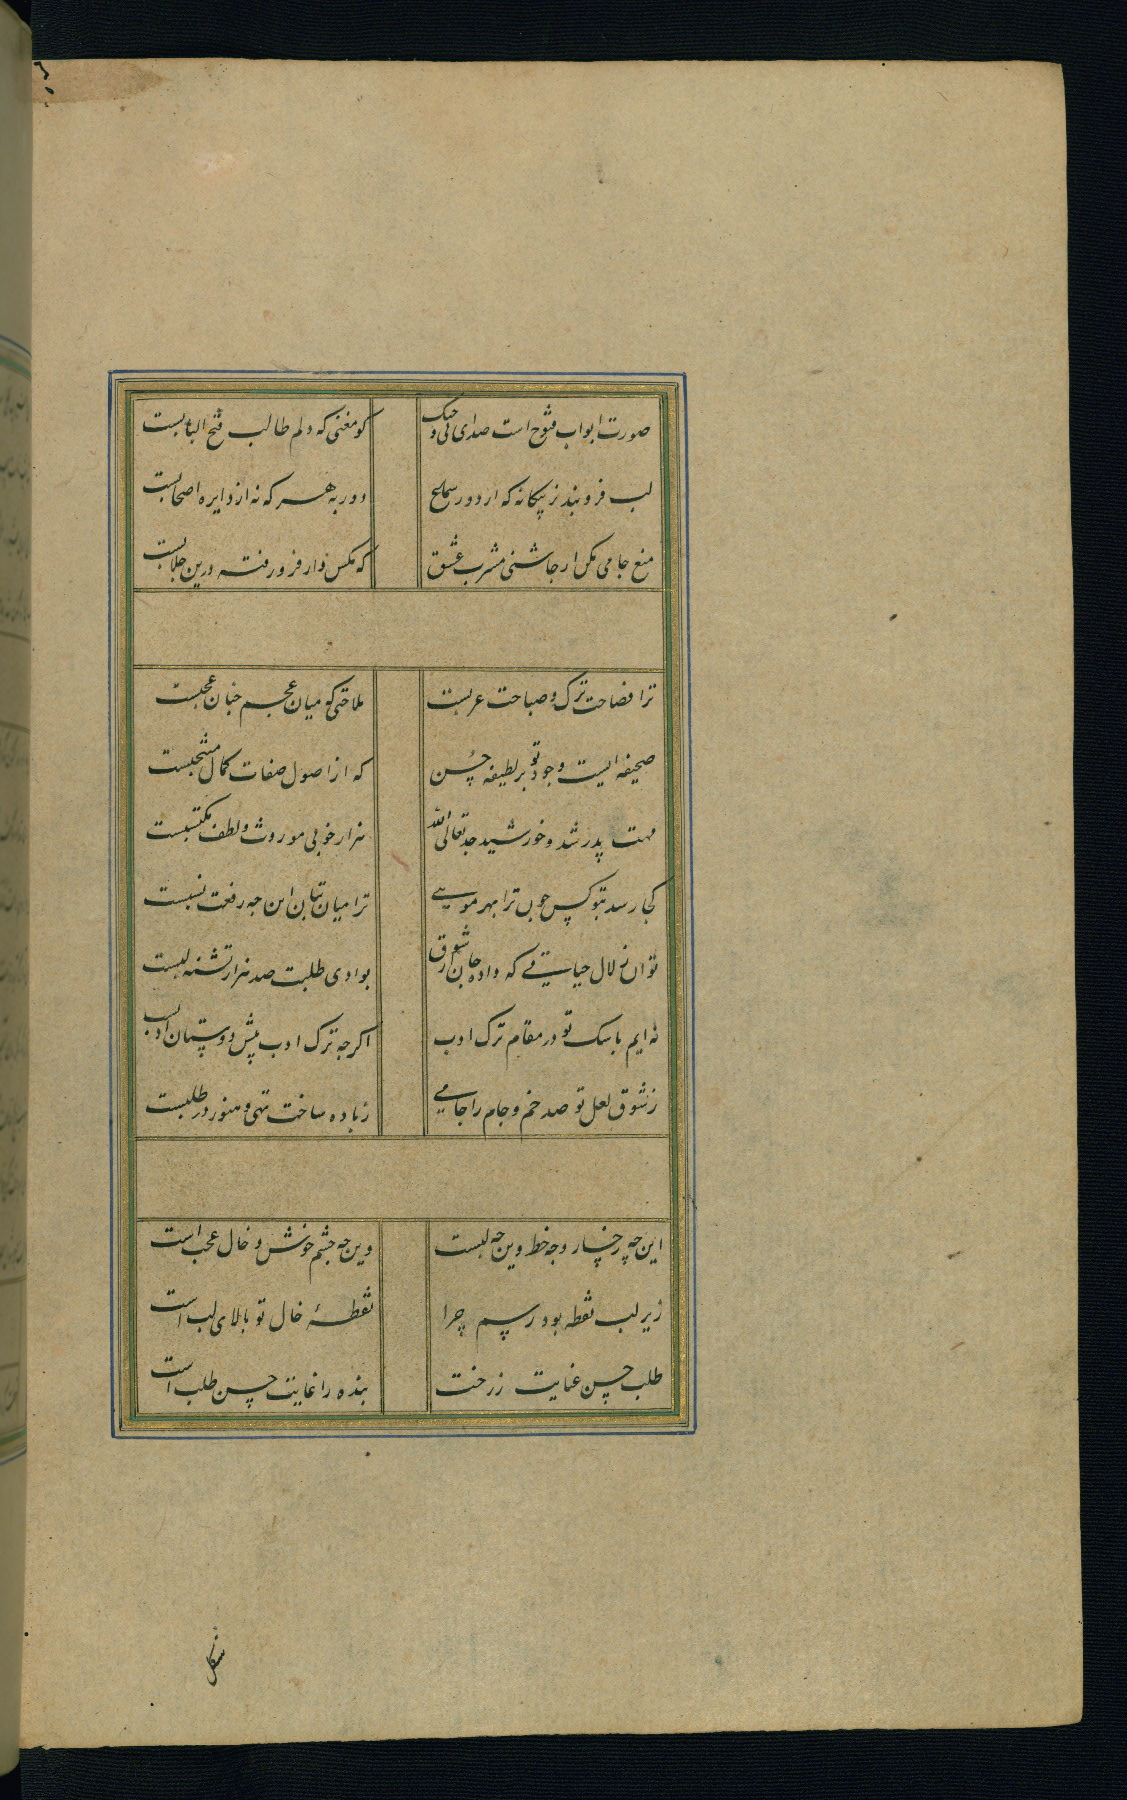 صورت ابواب فتوح است صدای نی و چنک کو مغنی که دلم طالب فتح البابست
لب فروبند ز پیکانه که اردور سماع دور به هر که نه از دایره اصحابست
منع جامی مکن ار چاشنی مشرب عشق که مکس وار فرو رفته درین جلابست
ترا فصاحت ترک و صباحت عربست ملاحتی که میان عجم چنان عجبست
صحیفه ایست وجود تو بر لطیفه حسن که از اصول صفات کمال منتخبست
مهت پدر شد و خورشید جد تعالی الله هزار خوبی موروث و لطف مکتسبست
کجا رسد بتو کس چون ترا بهر مویی ترا میان بتان این چه رفعت نسبست
تو ان زلال حیاتی که داده جان بوادی طلبت صد هزار تشنه لبست
نه ایم با سک تو در مقام ترک ادب اکرچه ترک ادب پیش دوستان ادبست
ز شوق لعل تو صد خم و جام را جامی ز باده ساخت تهی و هنوز در طلبست
این چه رخسار و چه خط وین چه لبست وین چه چشم خوش و خال عجب است
زیر لب نقطه بود رسم چرا نقطهٔ خال تو بالای لب است
طلب حسن عنایت ز رخت بنده را غایت حسن طلب است